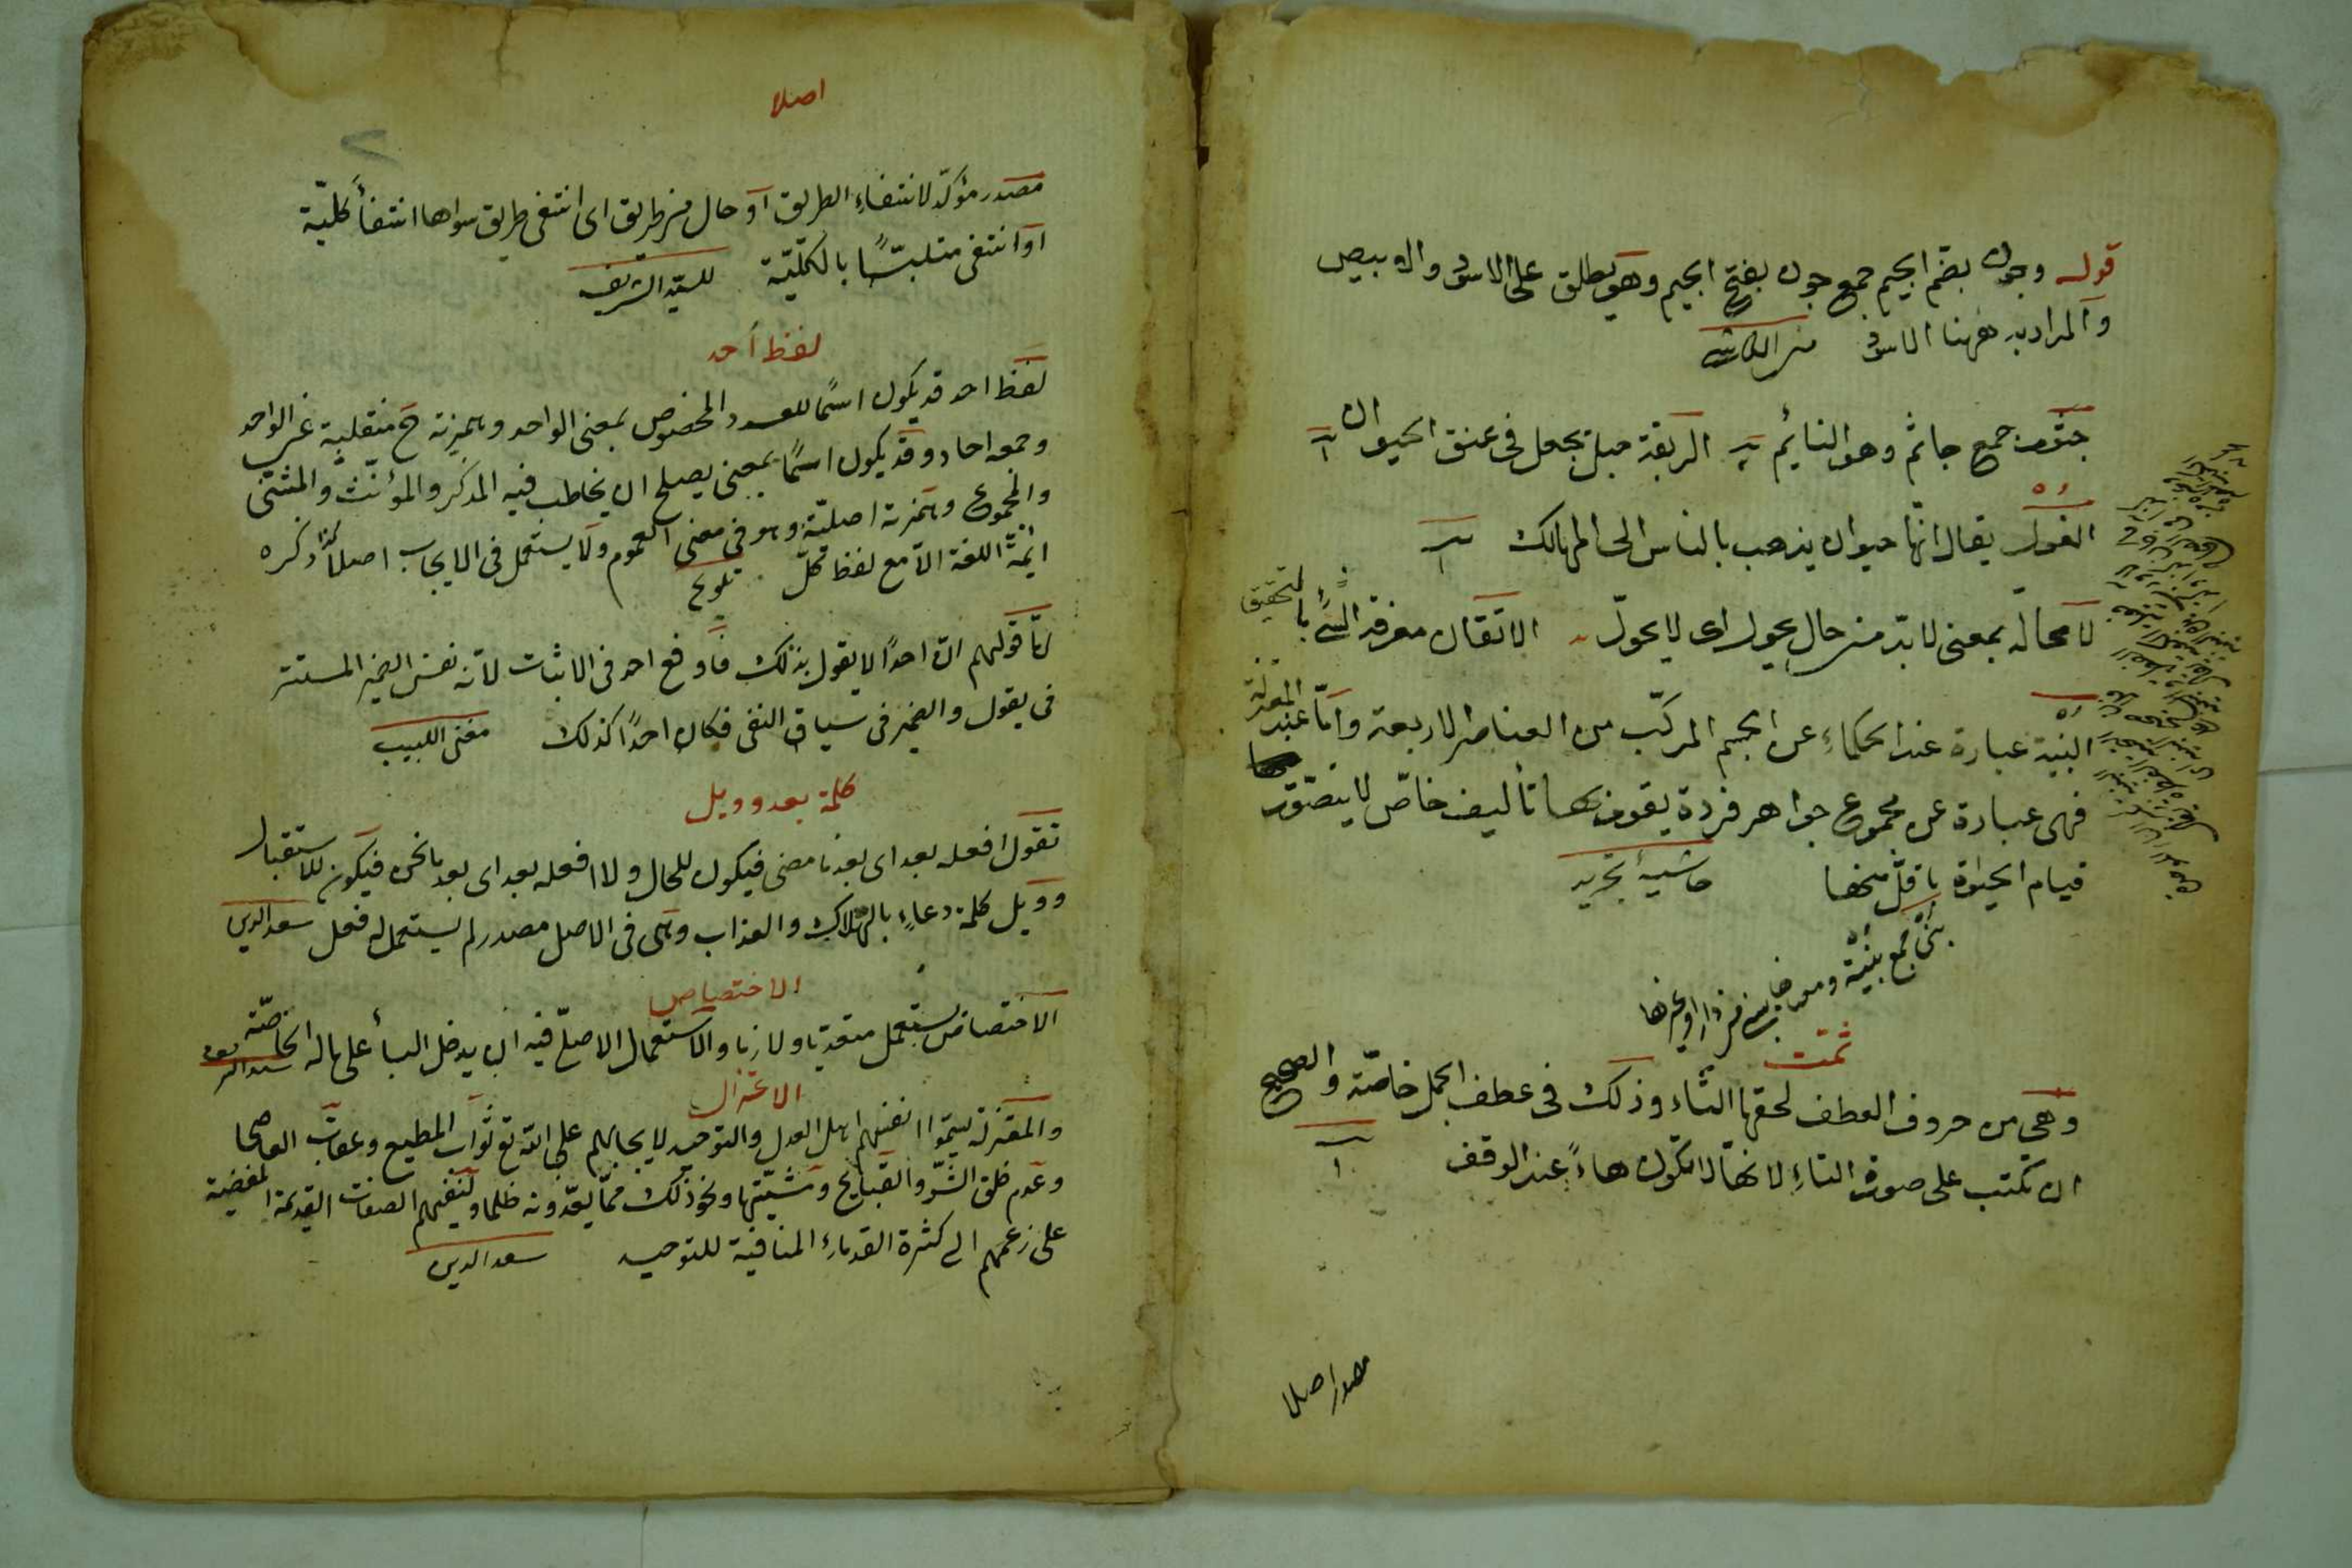 قوله وجون بضم الجيم جمع جون بفتح الجيم وهو يطلق على الاسود والابيض
والمراد به ههنا الاسود
جثوم جمع جاثم وهو النائم الربقة حبل تجعل فى عنق الحيوان
الغول يقال انّها حيوان يذهب بالناس الى المهالك
لا محالة بمعنى لا بدّ من حال يحول اى لا يحوّل الاتقان معرفة الشئ بالتحقيق
البنية عبارة عند الحكماء عن الجسم المركّب من العناصر الاربعة وامّا عند المعتزلة
فهى عبارة عن مجموع جواهر فردة يقوم بها تأليف خاصّ لا يتصوّر
قيام الحيوة باقلّ منها حاشية تجريد
بنى جمع بنية
ثمّت
وهى من حروف العطف لحقها التاء وذلك فى عطف الجمل خاصّة والصحيح
ان تكتب على صورة التاء لانها لا تكون هاءً عند الوقف
مصدر اصلا
اصلا
٢
مصدر مؤكّد لانتفاء الطريق او حال من طريق اى انتفى طريق سواها انتفاءً كليّة
او انتفى متلبّسًا بالكلّيّة للسيّد الشريف
لفظ احد
لفظ احد قد يكون اسمًا للعدد المخصوص بمعنى الواحد وهمزته ح منقلبة عن الواحد
وجمعه احاد وقد يكون اسمًا بمعنى يصلح ان يخاطب فيه المذكر والمؤنّث والمثنى
والمجموع وهمزته اصليّة وهو فى معنى العموم ولا يستعمل فى الايجاب اصلا كذا ذكره
ائمّة اللغة الّا مع لفظ كلّ تلويح
امّا قولهم انّ احدًا لا يقول بذلك فاوقع احد فى الاثبات لانّه نفس الضمير المستتر
فى يقول والضمير فى سياق النفى فكان احدًا كذلك مغنى اللبيب
كلمة بعد وويل
تقول افعله بعد اى بعد ما مضى فيكون للحال ولا افعله بعد اى بعد ما نحن فيكون للاستقبال
وويل كلمة دعاءٍ بالهلاك والعذاب وهى فى الاصل مصدر لم يستعمل له فعل سعد الدين
الاختصاص
الاختصاص يستعمل متعديا ولازما والاستعمال الاصلىّ فيه ان يدخل الباء على ماله الخاصّة
الاعتزال
والمعتزلة سمّوا انفسهم اهل العدل والتوحيد لايجابهم على الله تع ثواب المطيع وعقاب العاصى
وعدم خلق الشرّ والقبايح ومشيّتها ونحو ذلك ممّا يعدّونه ظلما ولنفيهم الصفات القديمة المفضية
على زعمهم الى كثرة القدماء المنافية للتوحيد سعد الدين